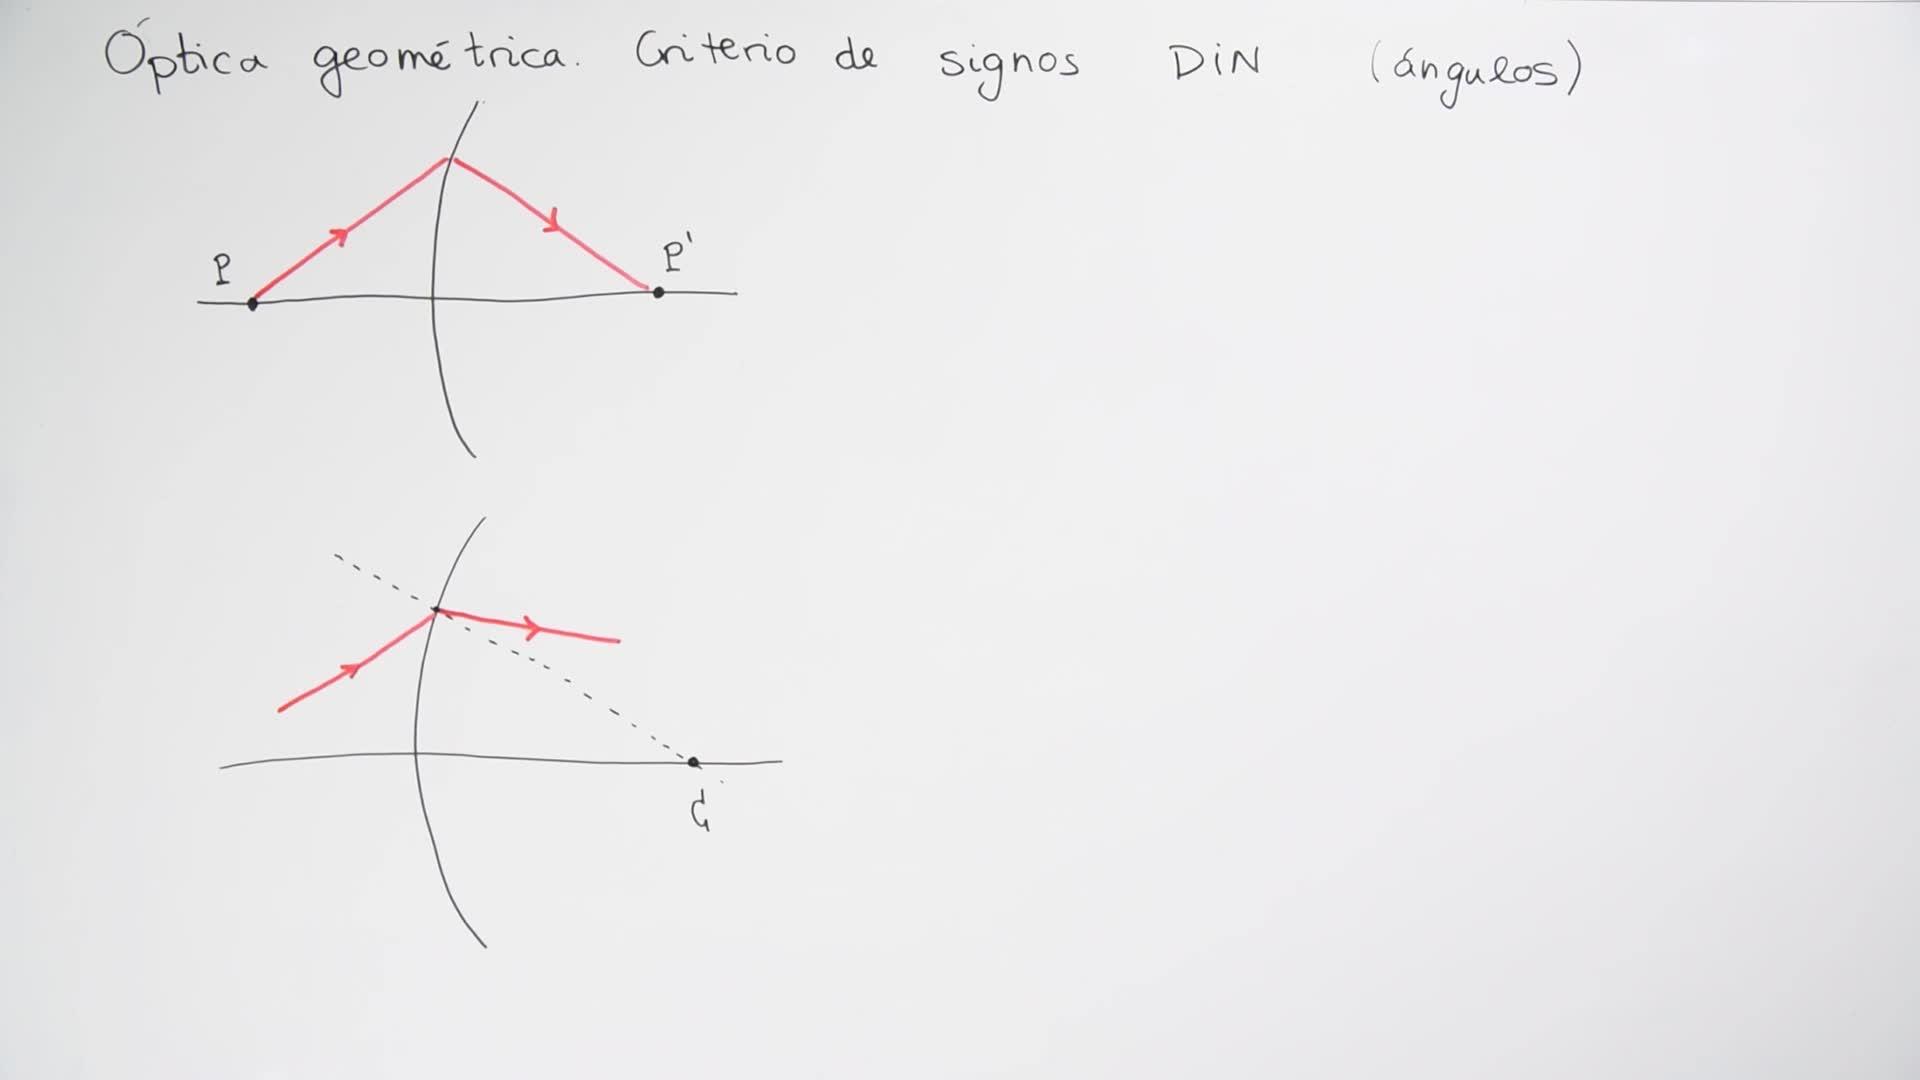 Óptica geométrica. Criterio de signos DiN (ángulos)
P
P'
C